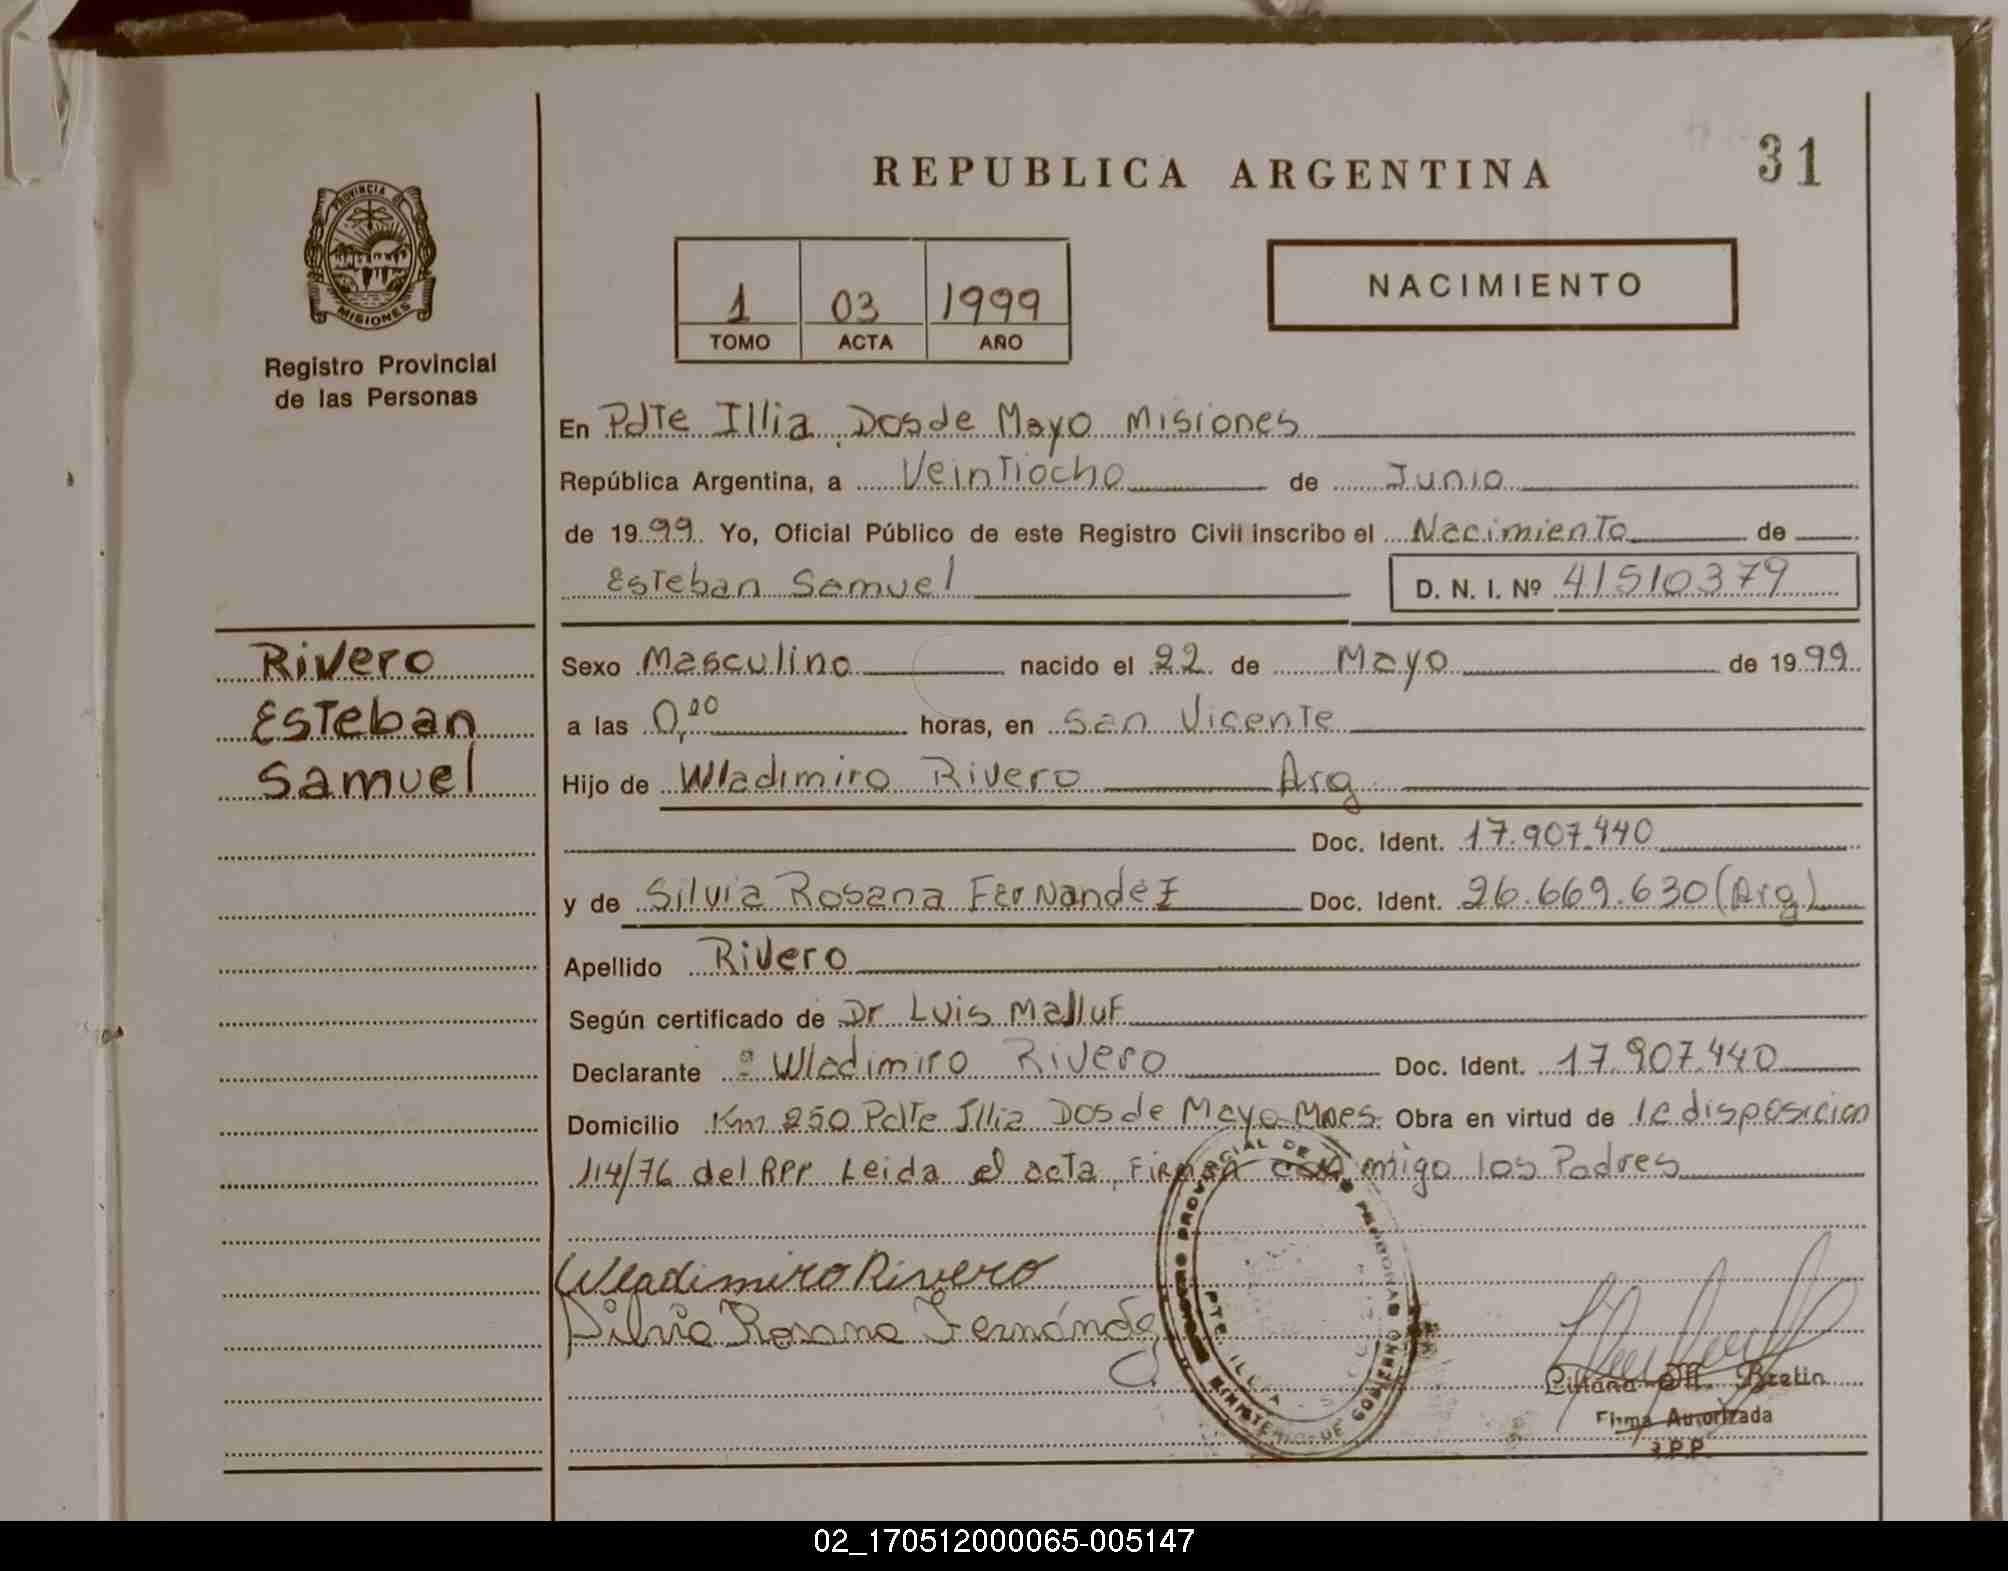 REPUBLICA ARGENTINA
31
PROVINCIA DE
MISIONES
Registro Provincial
de las Personas
1 03 1999
TOMO ACTA AÑO
NACIMIENTO
En Pdte Illia Dos de Mayo Misiones
República Argentina, a Veintiocho de Junio
de 1999. Yo, Oficial Público de este Registro Civil inscribo el Nacimiento de
Esteban Samuel D. N. I. Nº 41510379
Rivero
Esteban
Samuel
Sexo Masculino nacido el 22 de Mayo de 1999
a las horas, en San Vicente
Hijo de Wladimiro Rivero Arg
Doc. Ident. 17.907.440
y de Silvia Rosana Fernandez Doc. Ident. 26.669.630 (Arg)
Apellido Rivero
Según certificado de Dr Luis Malluf
Declarante : Wladimiro Rivero Doc. Ident. 17.907.440
Domicilio Km 250 Pdte Illia Dos de Mayo Mnes. Obra en virtud de la disposicion
114/76 del RPP Leida el acta, Firman conmigo los Padres
Wladimiro Rivero
Silvia Rosana Fernández
REGISTRO PROVINCIAL DE LAS PERSONAS
PTE. ILLIA
MINISTERIO DE GOBIERNO
Liliana M. Brelin
Firma Autorizada
R.P.P.
02_170512000065-005147